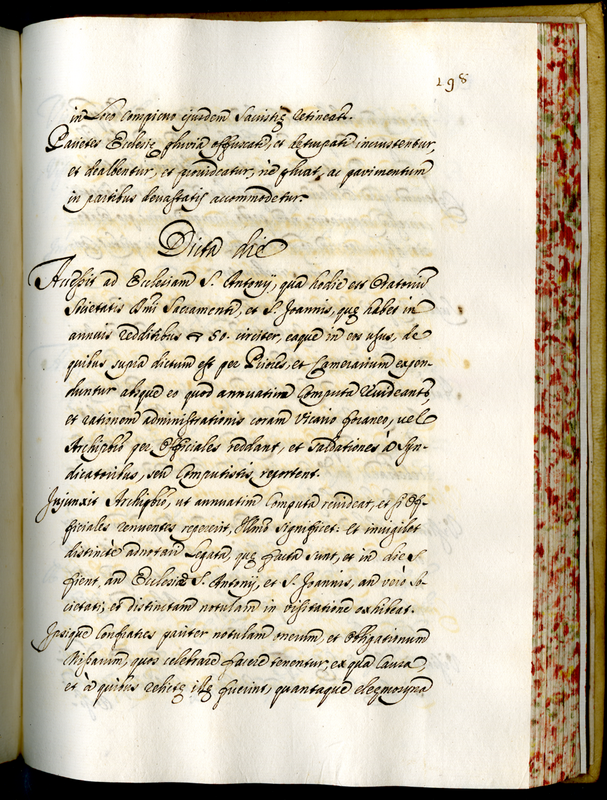 198
in loco conspicuo eiusdem Sacristię retineat.
Parietes Ecclesię pluvia offuscati, et deturpati incrustentur,
et dealbentur, et provideatur, nè pluat, ac pavimentum
in partibus devastatis accommodetur.
Dicta die
Accessit ad Ecclesiam S. Antonij, quę hodie est Oratoriũ
Societatis Smi Sacramenti, et S. Joannis, quę habet in
annuis redditibus 50. circiter, eaque in eos usus, de
quibus supra dictum est per Priores, et Camerarium expen-
duntur absque eo quod annuatim Computa revideantr,
et rationem administrationis coram Vicario foraneo, vel
Archipbro per Officiales reddant, et saldationes à Syn-
dicatoribus, seu Computistis reportent.
Injunxit Archipbro, ut annuatim Computa revideat, et si Of-
ficiales renuentes repererit, Illmo significet: Et invigilet
distincte adnotari Legata, quę facta sunt, et in dies
fient, an Ecclesiæ S. Antonij, et S. Joannis, an verò So-
cietati, et distinctam notulam in visitatione exhibeat.
Ipsique Confratres pariter notulam onerum, et obligationum
Missarum, quas celebrare facere tenentur, ex qua causa,
et à quibus relictę illę fuerint, quantaque eleęmosyna